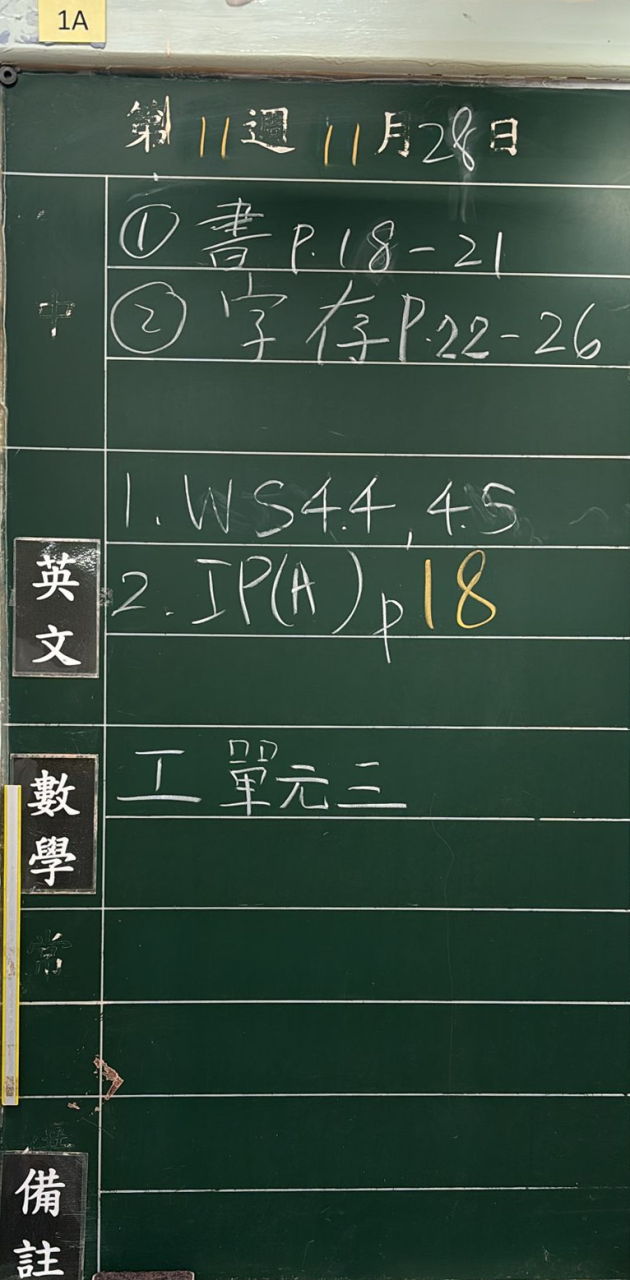 1A
第11週 11月28日
中
① 書 P.18-21
② 字存 P.22-26
英文
1. WS4.4, 4.5
2. IP(A) p18
數學
工 單元三
常
備註